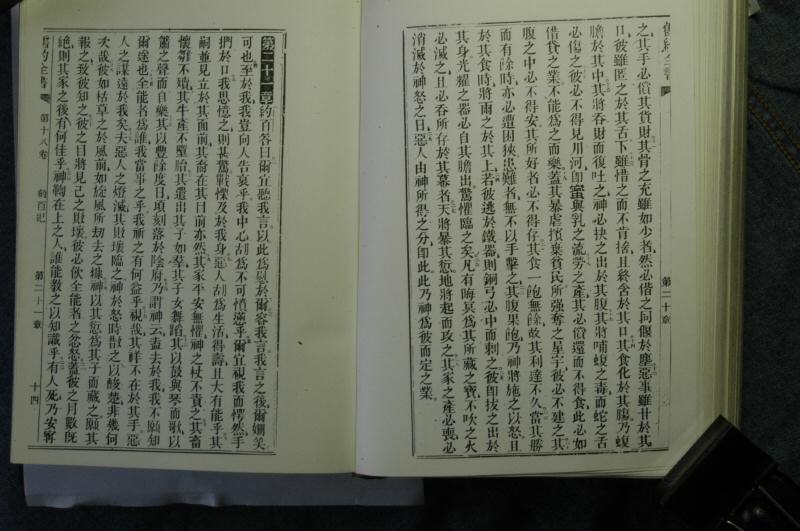 舊約全書
第二十章
之其手必償其貨財其骨之充雖如少者然必偕之同偃於塵惡事雖甘於其
口彼雖匿之於其舌下雖惜之而不肯捨且終含於其口其食化於其腸乃蝮
膽於其中其將吞財而復吐之神必抉之出於其腹其將哺蝮之毒而蛇之舌
必傷之彼必不得見川河卽蜜與乳之流勞之產其必償還而不得食此必如
借貸之業不能爲之而樂蓋其暴虐擯棄貧民所強奪之室宇彼必不建之其
腹之中必不得安其所好者必不得存其食一飽無餘故其利達不久當其勝
而有餘時亦必遭困狹患難者無不以手擊之其腹果飽乃神將施之以怒且
於其食時將雨之於其上若彼逃於鐵器則銅弓必中而刺之卽拔之出於
其身光耀之器必自其膽出驚懼臨之矣凡有晦冥爲其所藏之寶不吹之火
必滅之且必吞所存於其幕者天將暴其愆地將起而攻之其家之產必喪必
消滅於神怒之日惡人由神所得之分卽此此乃神爲彼而定之業
第二十一章約百答曰爾宜聽我言以此爲慰於爾容我言我言之後爾姍笑
可也至於我我豈向人告哀乎我中心胡爲不可憤懣乎爾宜視我而愕然手
捫於口我思憶之則甚驚戰慄及於我身惡人胡爲生活得壽且大有能乎其
嗣並見立於其面前其裔在其目前亦然其家平安無懼神之杖不責之其畜
懷孕不殰其牛產不墮胎其遣出其子如羣其子女舞蹈其以鼓與琴而歌以
簫之聲而自樂其以豐餘度日頃刻落於陰府乃謂神云盍去於我我不願知
爾途也全能者爲誰我當事之乎我祈之有何益乎視哉其祥不在於其手惡
人之謀遠於我矣夫惡人之燈滅其敗壞臨之神於怒時散之以酸楚非幾何
次哉彼如枯草之於風前如旋風所刼去之糠神以其愆爲其子而藏之願其
報之致彼知之彼之目將見己之敗壞彼必飲全能者之忿怒蓋彼之月數旣
絕則其家之後有何佳乎神鞫在上之人誰能敎之以知識乎有人死乃安寧
舊約全書
第十八卷
約百記
第二十一章
十四